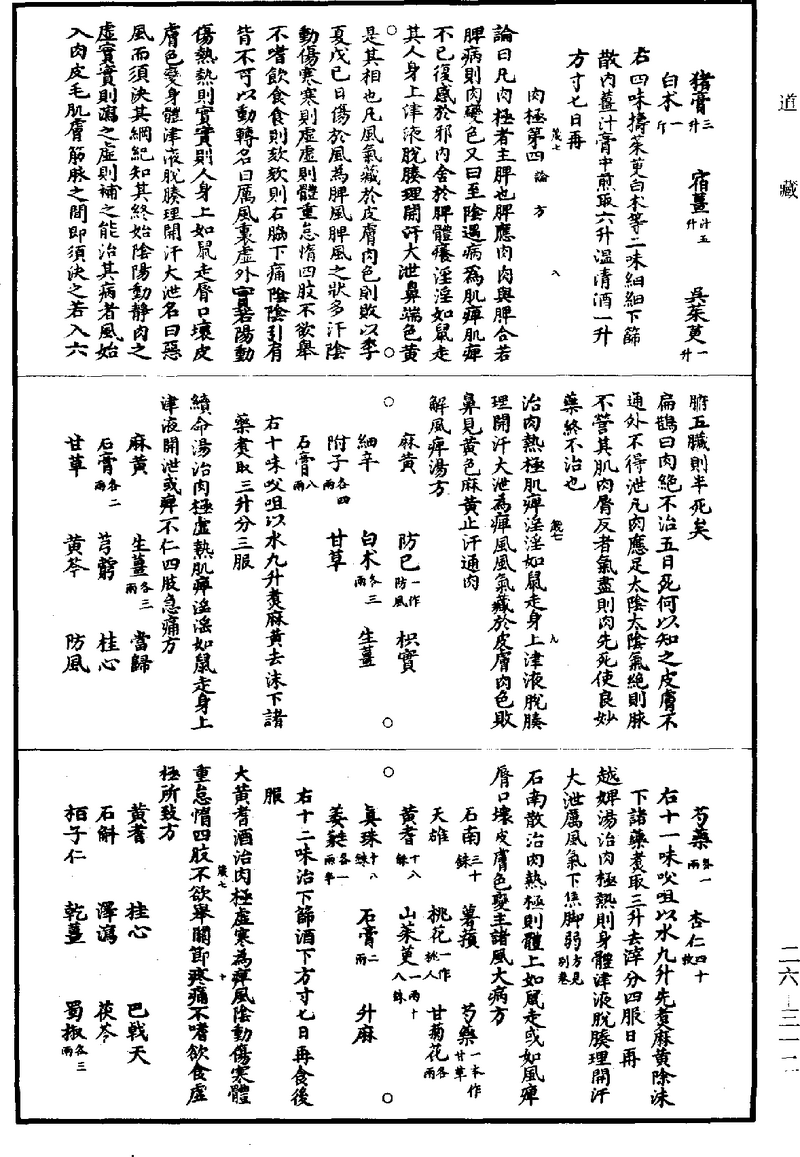 道藏
猪膏三升　宿薑汁五升　吳茱萸一升
白朮一斤
右四味擣茱萸白朮等二味細細下篩
散內薑汁膏中煎取六升溫清酒一升
方寸七日再
肉極第四論　方
論曰凡肉極者主脾也脾應肉肉與脾合若
脾病則肉變色又曰至陰遇病為肌痺肌痺
不已復感於邪內舍於脾體癢淫淫如鼠走
其人身上津液脫腠理開汗大泄鼻端色黃
是其相也凡風氣藏於皮膚肉色則敗以季
夏戊己日傷於風為脾風脾風之狀多汗陰
動傷寒寒則虛虛則體重怠惰四肢不欲舉
不嗜飲食食則欬欬則右脇下痛陰陰引肩
背不可以動轉名曰厲風裏虛外實若陽動
傷熱熱則實實則人身上如鼠走脣口壞皮
膚色變身體津液脫腠理開汗大泄名曰惡
風而須決其綱紀知其終始陰陽動靜肉之
虛實實則瀉之虛則補之能治其病者風始
入肉皮毛肌膚筋脉之間即須決之若入六
腑五臟則半死矣
扁鵲曰肉絕不治五日死何以知之皮膚不
通外不得泄凡肉應足太陰太陰氣絕則脉
不營其肌肉脣反者氣盡則肉先死使良妙
藥終不治也
治肉熱極肌痺淫淫如鼠走身上津液脫腠
理開汗大泄為痺風風氣藏於皮膚肉色敗
鼻見黃色麻黃止汗通肉
解風痺湯方
麻黃　防己一作防風　枳實
細辛　白朮各三兩　生薑
附子各四兩　甘草
石膏八兩
右十味㕮咀以水九升煑麻黃去沫下諸
藥煑取三升分三服
續命湯治肉極虛熱肌痺淫淫如鼠走身上
津液開泄或痺不仁四肢急痛方
麻黃　生薑各三兩　當歸
石膏各二兩　芎藭　桂心
甘草　黃芩　防風
芍藥各一兩　杏仁四十枚
右十一味㕮咀以水九升先煑麻黃除沫
下諸藥煑取三升去滓分四服日再
越婢湯治肉極熱則身體津液脫腠理開汗
大泄厲風氣下焦脚弱方見別卷
石南散治肉熱極則體上如鼠走或如風痺
脣口壞皮膚色變主諸風大病方
石南三十銖　薯蕷　芍藥一本作甘草
天雄　桃花一作桃人　甘菊花各一兩
黃耆十八銖　山茱萸一兩十八銖
真珠十八銖　石膏二兩　升麻
萎蕤各一兩半
右十二味治下篩酒下方寸七日再食後
服
大黃耆酒治肉極虛寒為痺風陰動傷寒體
重怠惰四肢不欲舉關節疼痛不嗜飲食虛
極所致方
黃耆　桂心　巴戟天
石斛　澤瀉　茯苓
栢子仁　乾薑　蜀椒各三兩